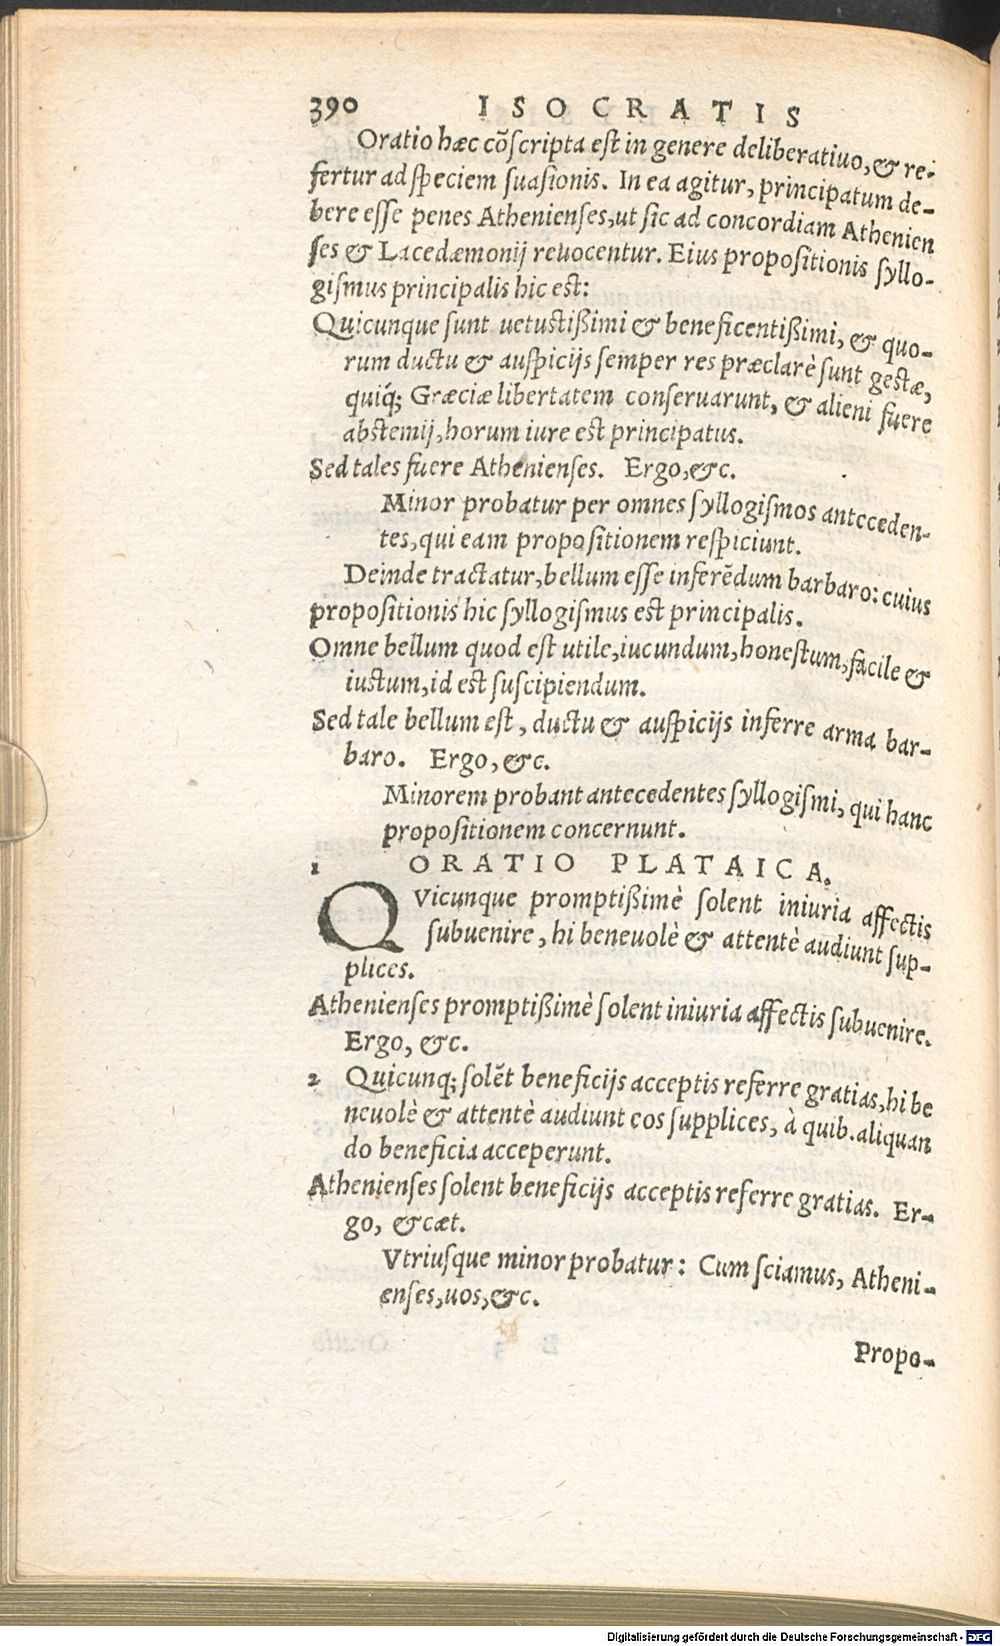 390 ISOCRATIS
Oratio hæc cõſcripta eſt in genere deliberatiuo, & re-
fertur ad ſpeciem ſuaſionis. In ea agitur, principatum de-
bere eſſe penes Athenienſes, ut ſic ad concordiam Athenien
ſes & Lacedæmonij reuocentur. Eius propoſitionis ſyllo-
giſmus principalis hic eſt:
Quicunque ſunt uetuſtißimi & beneficentißimi, & quo-
rum ductu & auſpicijs ſemper res præclarè ſunt geſtæ,
quiq́; Græciæ libertatem conſeruarunt, & alieni fuere
abſtemij, horum iure eſt principatus.
Sed tales fuere Athenienſes. Ergo, &c.
Minor probatur per omnes ſyllogiſmos anteceden-
tes, qui eam propoſitionem reſpiciunt.
Deinde tractatur, bellum eſſe inferẽdum barbaro: cuius
propoſitionis hic ſyllogiſmus eſt principalis.
Omne bellum quod eſt utile, iucundum, honeſtum, facile &
iuſtum, id eſt ſuſcipiendum.
Sed tale bellum eſt, ductu & auſpicijs inferre arma bar-
baro. Ergo, &c.
Minorem probant antecedentes ſyllogiſmi, qui hanc
propoſitionem concernunt.
1 ORATIO PLATAICA.
QVicunque promptißimè ſolent iniuria affectis
ſubuenire, hi beneuolè & attentè audiunt ſup-
plices.
Athenienſes promptißimè ſolent iniuria affectis ſubuenire.
Ergo, &c.
2 Quicunq; ſolẽt beneficijs acceptis referre gratias, hi be
neuolè & attentè audiunt eos ſupplices, à quib. aliquan
do beneficia acceperunt.
Athenienſes ſolent beneficijs acceptis referre gratias. Er-
go, &cæt.
Vtriuſque minor probatur: Cum ſciamus, Atheni-
enſes, uos, &c.
Propo-
Digitalisierung gefördert durch die Deutsche Forschungsgemeinschaft - DFG